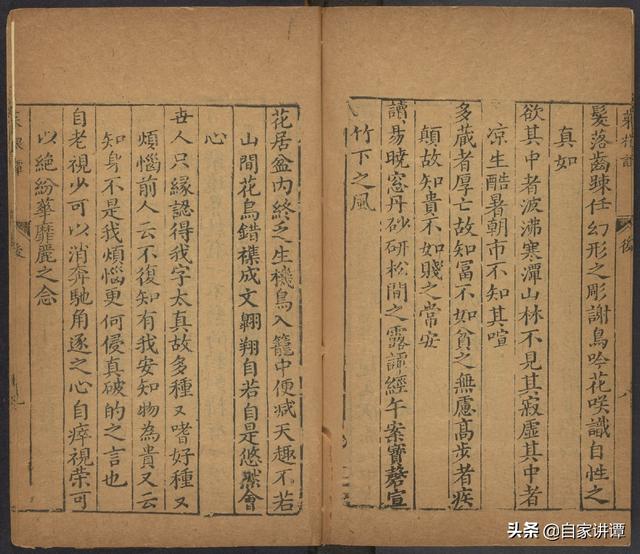 菜根譚 後
髮落齒踈任幻形之彫謝鳥吟花咲識自性之
真如
欲其中者波沸寒潭山林不見其寂虛其中者
凉生酷暑朝市不知其喧
多蔵者厚亡故知冨不如貧之無慮髙步者疾
顛故知貴不如賤之常安
讀易曉窓丹砂研松間之露譚經午案寶磬宣
竹下之風
花居盆内終乏生機鳥入籠中便减天趣不若
山間花鳥錯襍成文翺翔自若自是悠然會
心
世人只緣認得我字太真故多種又嗜好種又
煩惱前人云不復知有我安知物為貴又云
知身不是我煩惱更何侵真破的之言也
自老視少可以消奔馳角逐之心自瘁視荣可
以絶紛華靡麗之念
菜根譚 後
头条 @自家讲谭